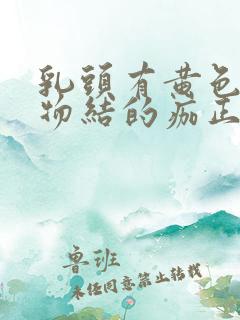 乳頭有黃色
物結的痂正
鲁班
未经同意禁止转载